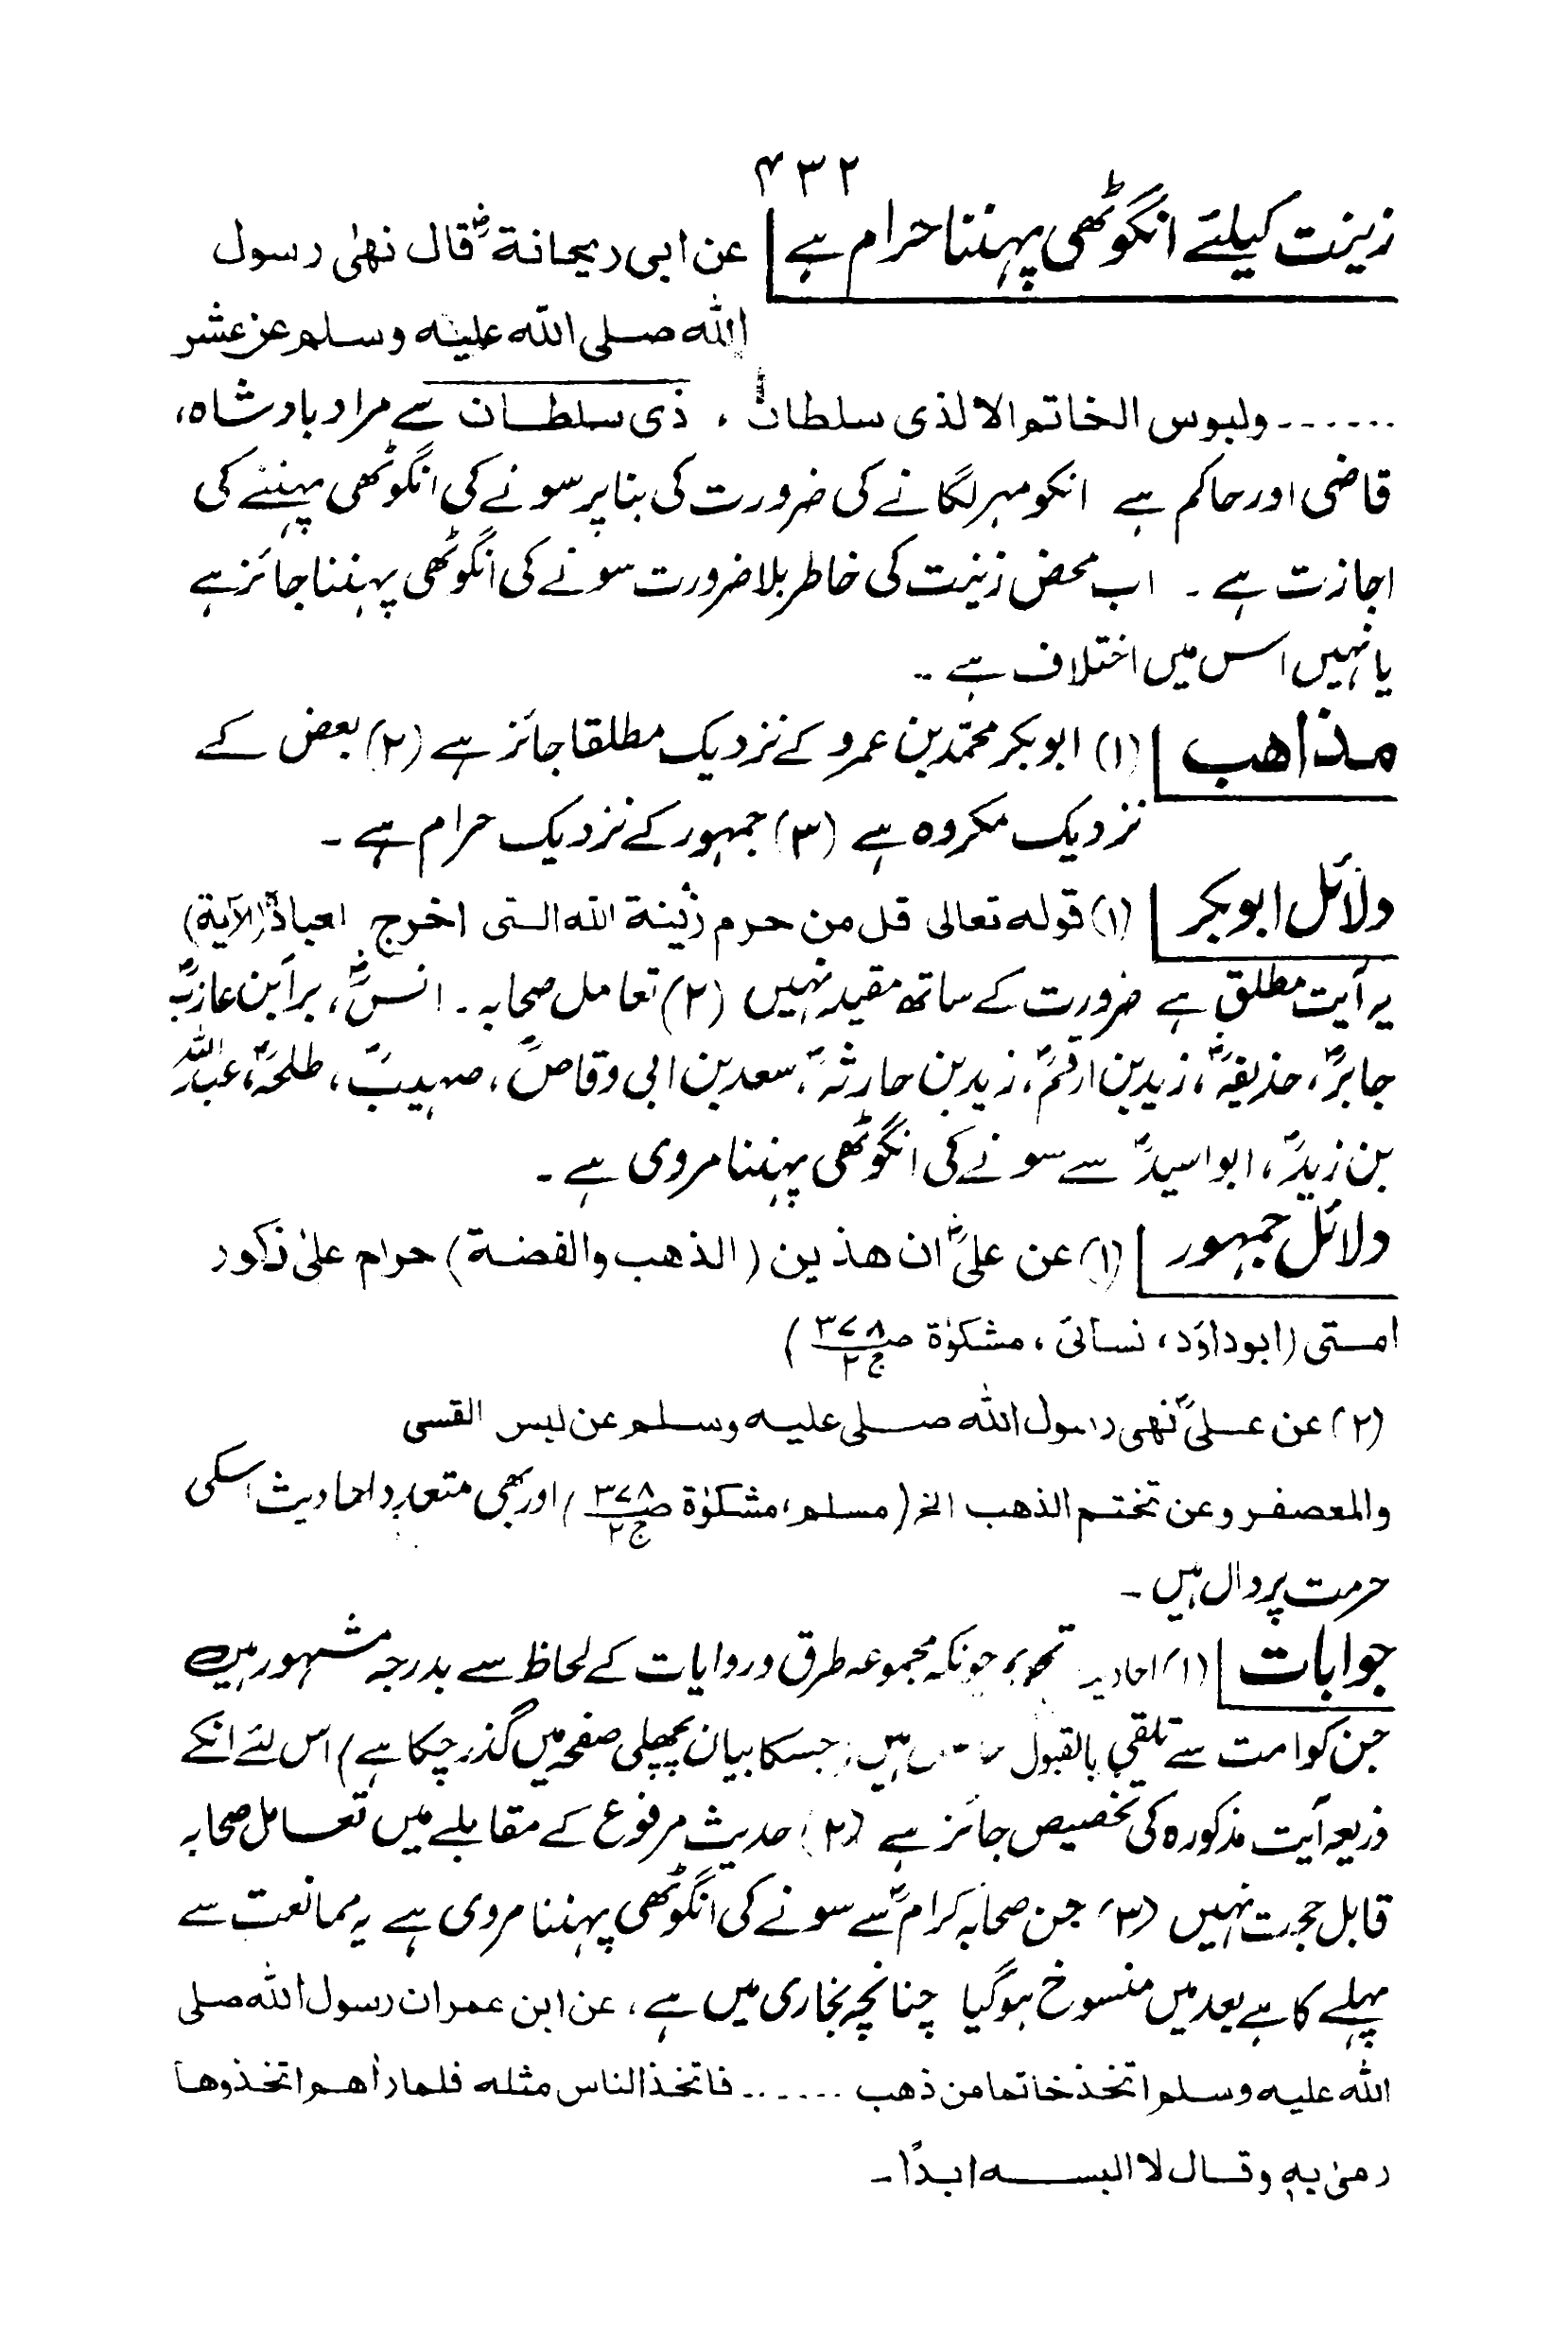 ۴۳۲
زینت کیلئے انگوٹھی پہننا حرام ہے عن ابی ریحانةؓ قال نھٰی رسول
اللّٰه صلی اللّٰه علیه وسلم عن عشر
۔۔۔۔۔۔ ولبوس الخاتم الا لذی سلطان ، ذی سلطان سے مراد بادشاہ،
قاضی اور حاکم ہے انکو مہر لگانے کی ضرورت کی بنا پر سونے کی انگوٹھی پہننے کی
اجازت ہے ۔ اب محض زینت کی خاطر بلا ضرورت سونے کی انگوٹھی پہننا جائز ہے
یا نہیں اس میں اختلاف ہے ۔
مذاھب (۱) ابو بکر محمد بن عمرو کے نزدیک مطلقا جائز ہے (۲) بعض کے
نزدیک مکروہ ہے (۳) جمہور کے نزدیک حرام ہے ۔
دلائل ابوبکر (۱) قوله تعالی قل من حرم زینة اللّٰه التی اخرج لعبادہٖ (الآیة)
یہ آیت مطلق ہے ضرورت کے ساتھ مقید نہیں (۲) تعامل صحابہ ۔ انسؓ، برأ بن عازبؓ
جابرؓ، حذیفہؓ، زید بن ارقمؓ، زید بن حارثہؓ، سعد بن ابی وقاصؓ، صہیبؓ، طلحہؓ، عبداللّٰہ
بن زیدؓ، ابو اسیدؓ سے سونے کی انگوٹھی پہننا مروی ہے ۔
دلائل جمہور (۱) عن علیؓ ان ھذین (الذھب والفضة) حرام علیٰ ذکور
امتی (ابوداؤد، نسائی، مشکوٰة صـ۳۷۸ ج۲)
(۲) عن علیؓ نھی رسول اللّٰه صلی علیه وسلم عن لبس القسی
والمعصفر وعن تختم الذھب الخ (مسلم، مشکوٰة صـ۳۷۸ ج۲) اور بھی متعدد احادیث اسکی
حرمت پر دال ہیں ۔
جوابات (۱) چونکہ مجموعہ طرق و روایات کے لحاظ سے بدرجہ مشہور ہیں
جن کو امت سے تلقی بالقبول ہیں (جسکا بیان پچھلی صفحہ میں گذر چکا ہے) اس لئے انکے
ذریعہ آیت مذکورہ کی تخصیص جائز ہے (۲) حدیث مرفوع کے مقابلے میں تعامل صحابہ
قابل حجت نہیں (۳) جن صحابہ کرامؓ سے سونے کی انگوٹھی پہننا مروی ہے یہ ممانعت سے
پہلے کا ہے بعد میں منسوخ ہوگیا چنانچہ بخاری میں ہے، عن ابن عمر ان رسول اللّٰه صلی
اللّٰه علیه وسلم اتخذ خاتما من ذھب ۔۔۔۔۔۔ فاتخذ الناس مثله فلما رأھم اتخذوھا
رمیٰ به وقال لا البسه ابدًا ۔